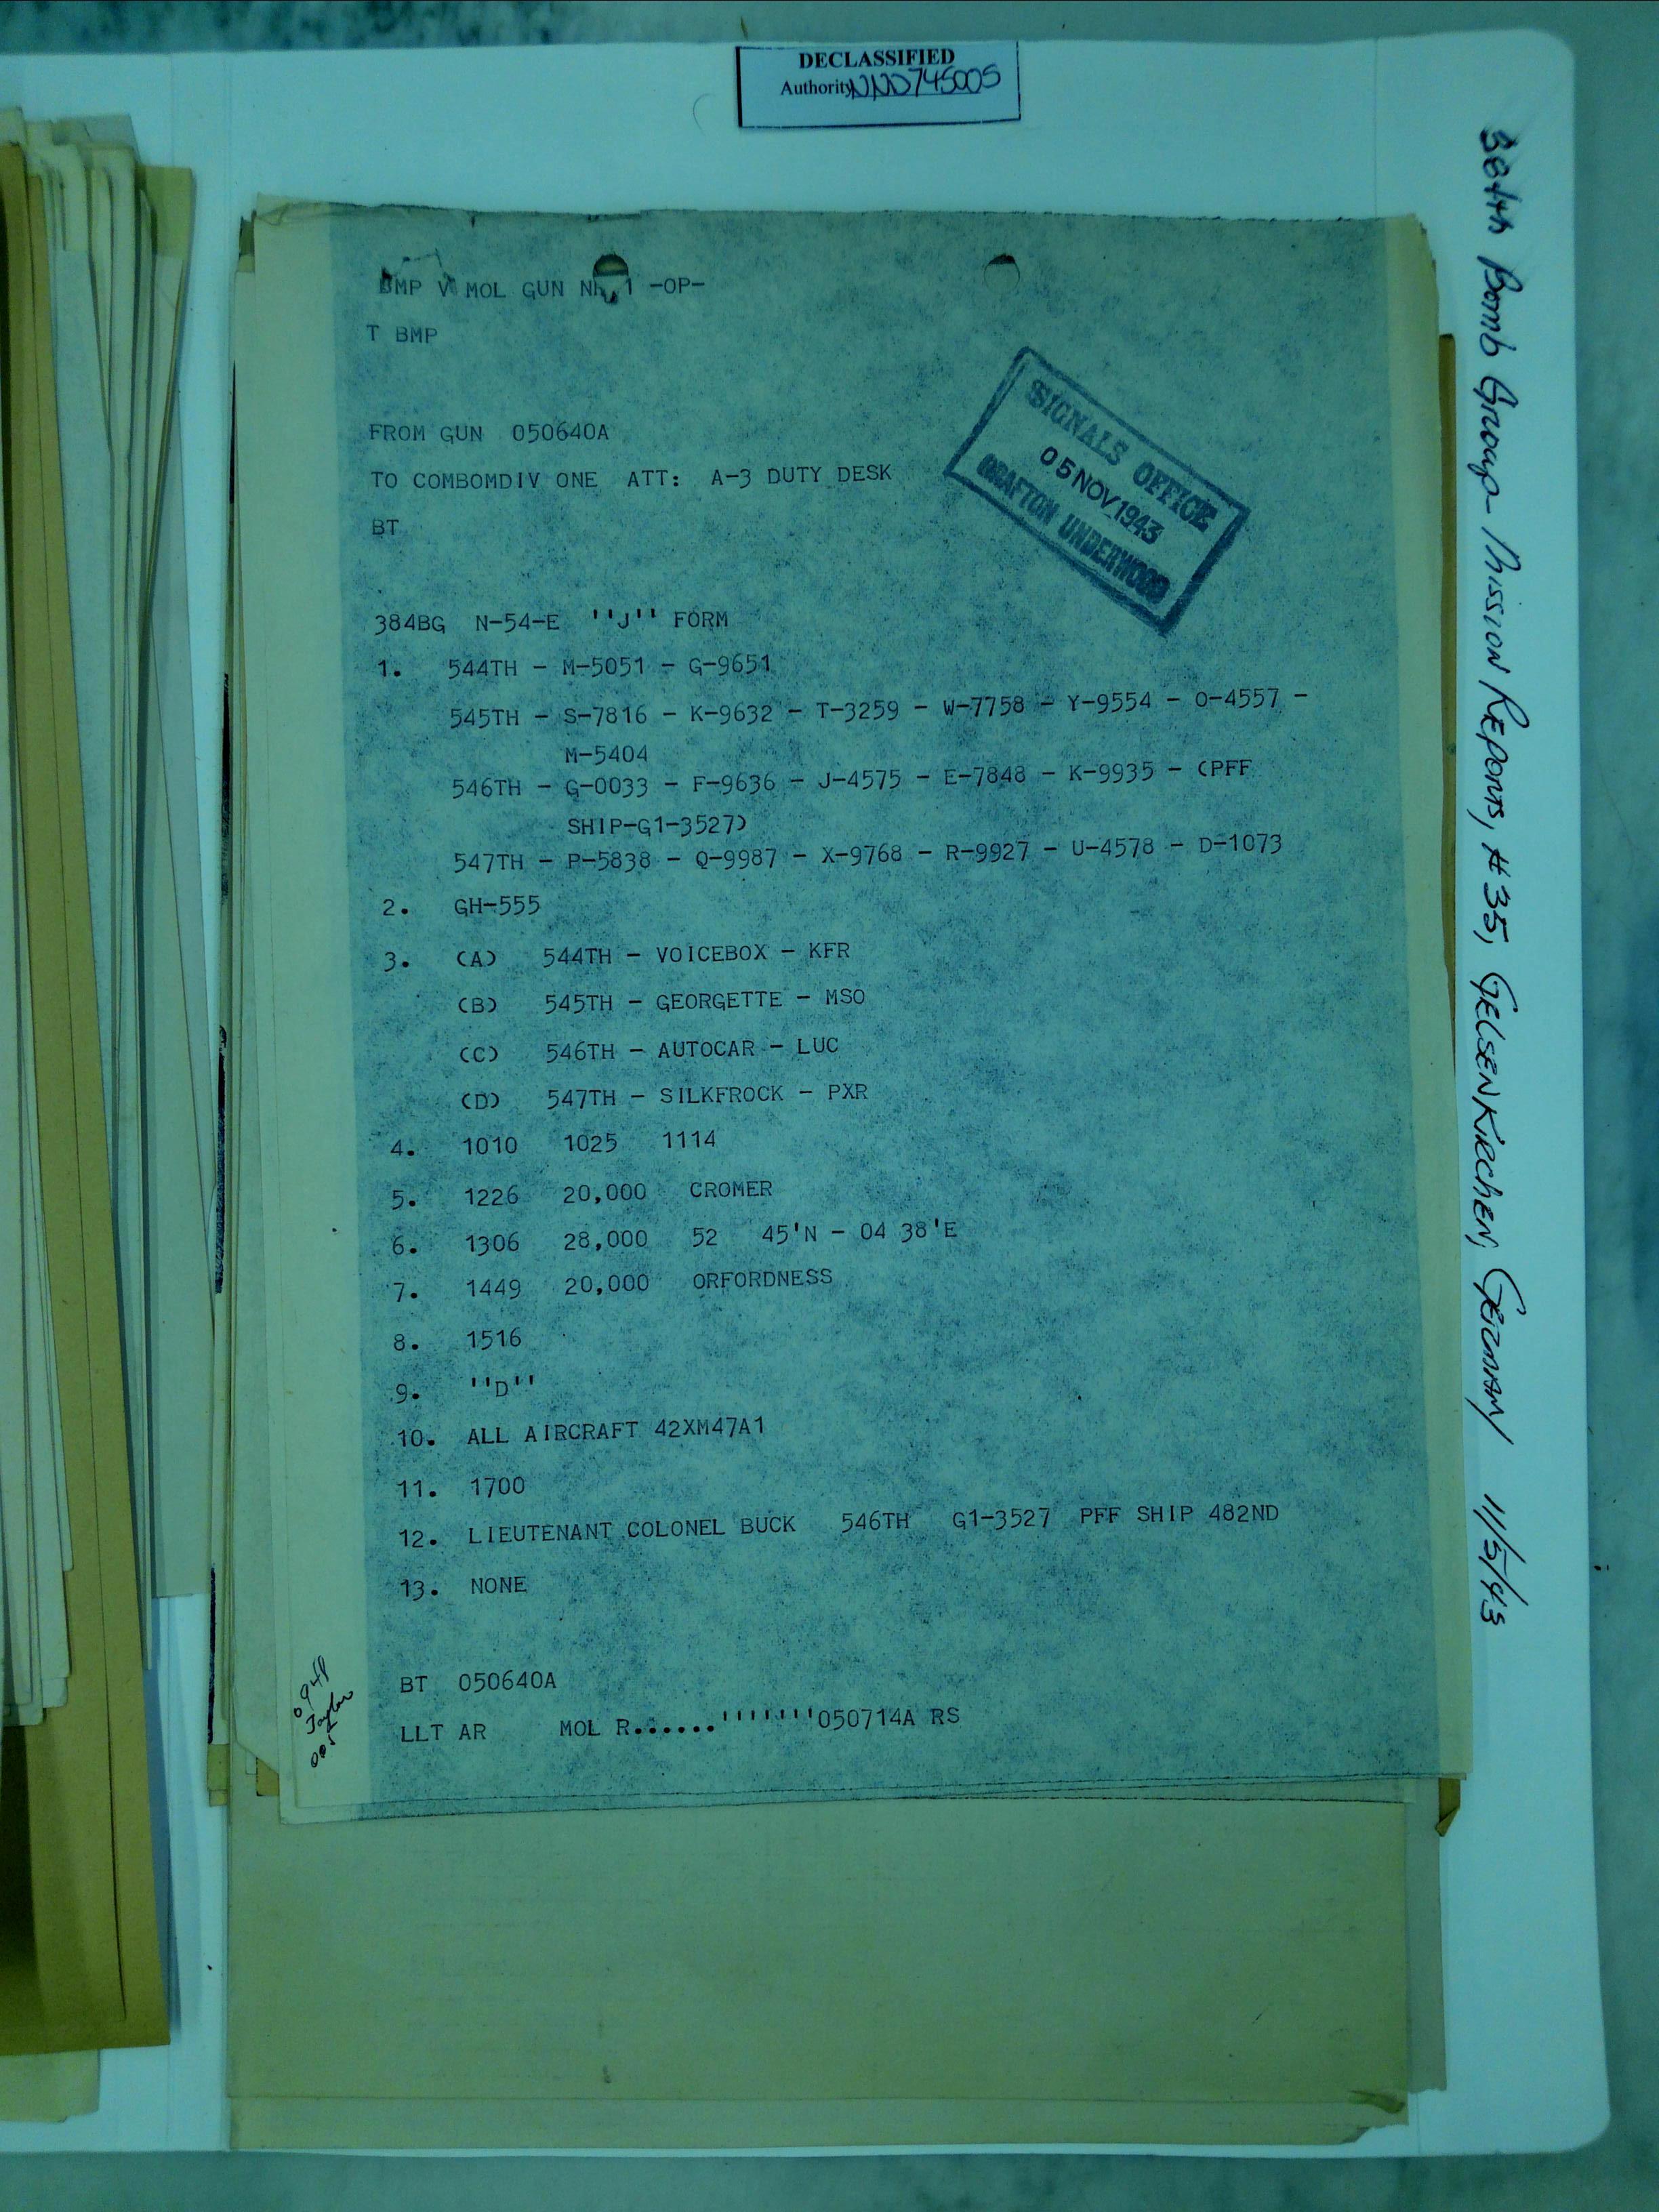 DECLASSIFIED
Authority NND745005
384th Bomb Group Mission Reports, #35, GELSENKIRCHEN, GERMANY 11/5/43
BMP V MOL GUN NR 1 -OP-
T BMP
SIGNALS OFFICE
05 NOV 1943
GRAFTON UNDERWOOD
FROM GUN 050640A
TO COMBOMDIV ONE ATT: A-3 DUTY DESK
BT
384BG N-54-E ''J'' FORM
1. 544TH - M-5051 - G-9651
545TH - S-7816 - K-9632 - T-3259 - W-7758 - Y-9554 - O-4557 -
M-5404
546TH - G-0033 - F-9636 - J-4575 - E-7848 - K-9935 - (PFF
SHIP-G1-3527)
547TH - P-5838 - Q-9987 - X-9768 - R-9927 - U-4578 - D-1073
2. GH-555
3. (A) 544TH - VOICEBOX - KFR
(B) 545TH - GEORGETTE - MSO
(C) 546TH - AUTOCAR - LUC
(D) 547TH - SILKFROCK - PXR
4. 1010 1025 1114
5. 1226 20,000 CROMER
6. 1306 28,000 52 45'N - 04 38'E
7. 1449 20,000 ORFORDNESS
8. 1516
9. ''D''
10. ALL AIRCRAFT 42XM47A1
11. 1700
12. LIEUTENANT COLONEL BUCK 546TH G1-3527 PFF SHIP 482ND
13. NONE
BT 050640A
LLT AR MOL R......'''''''050714A RS